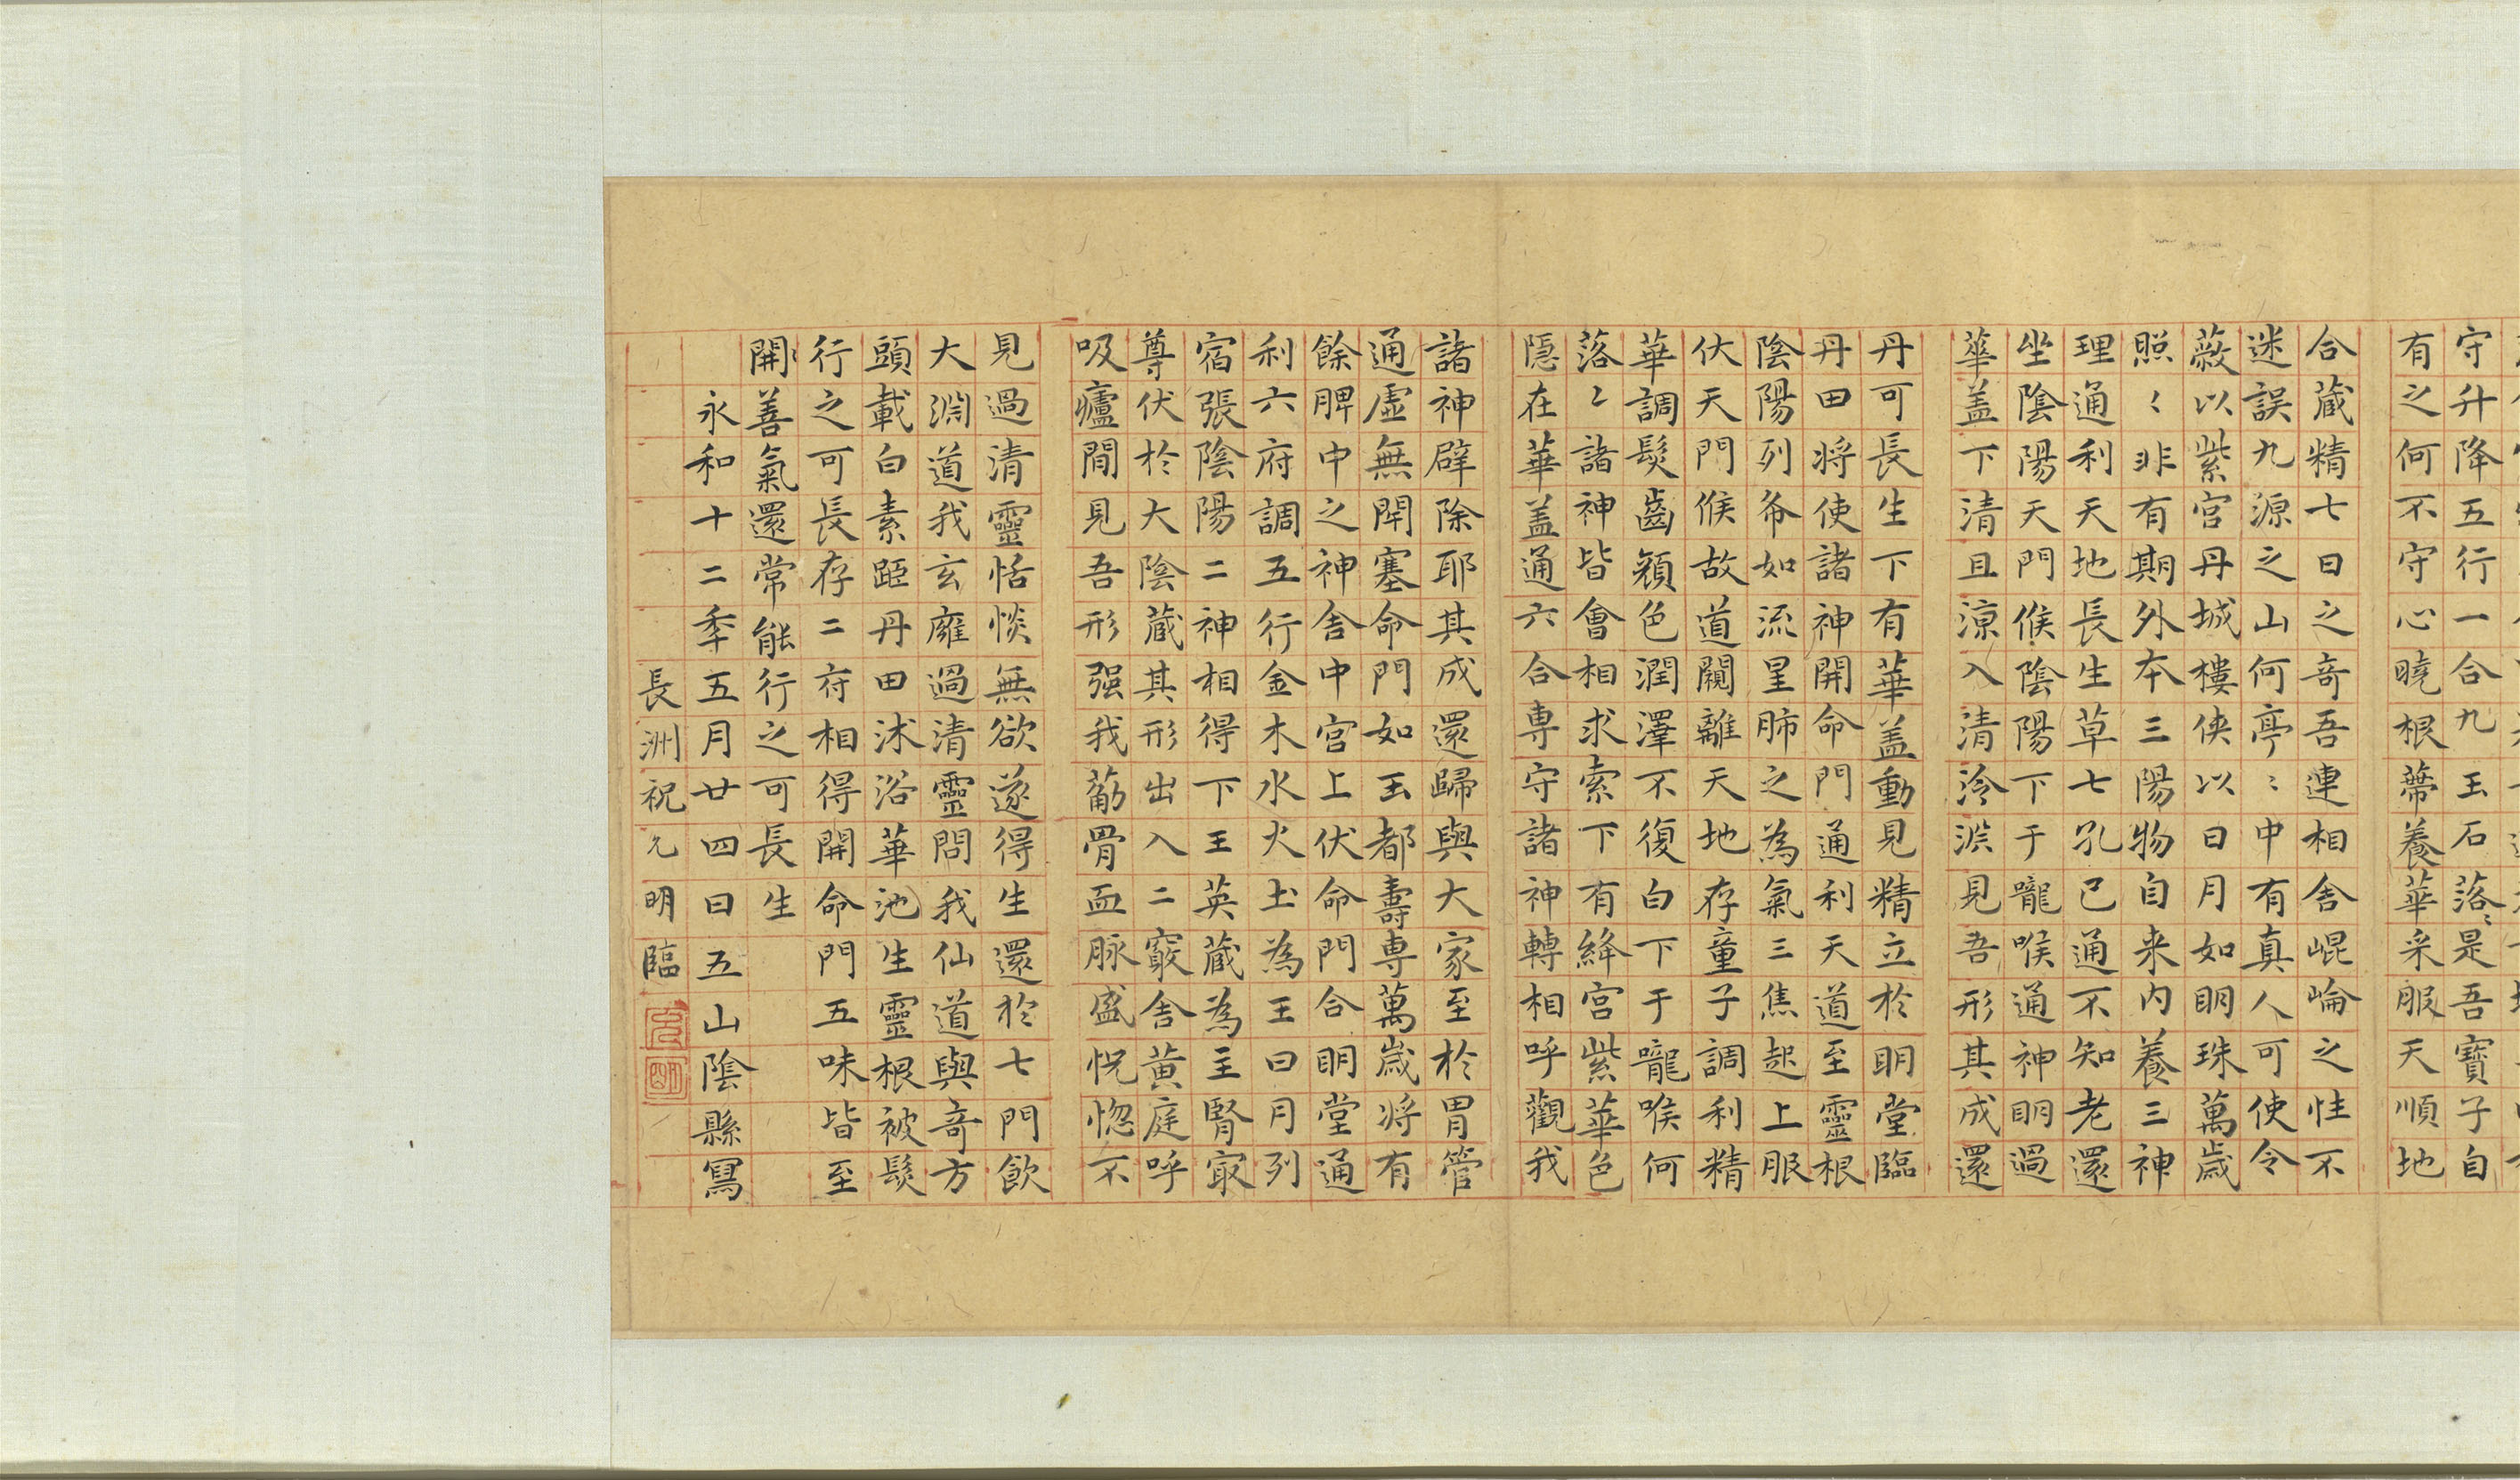 守升降五行一合九玉石落〻是吾寶子自
有之何不守心曉根蔕養華采服天順地
合藏精七日之奇吾連相舍崐崘之性不
迷誤九源之山何亭〻中有真人可使令
蔽以紫宮丹城樓俠以日月如明珠萬歲
照〻非有期外本三陽物自来内養三神
理通利天地長生草七孔已通不知老還
坐陰陽天門候陰陽下于嚨喉通神明過
華盖下清且涼入清泠淵見吾形其成還
丹可長生下有華盖動見精立於明堂臨
丹田将使諸神開命門通利天道至靈根
陰陽列布如流星肺之為氣三焦起上服
伏天門候故道闚離天地存童子調利精
華調髮齒顏色潤澤不復白下于嚨喉何
落〻諸神皆會相求索下有絳宮紫華色
隱在華盖通六合専守諸神轉相呼觀我
諸神辟除耶其成還歸與大家至於胃管
通虛無閇塞命門如玉都壽専萬歲将有
餘脾中之神舍中宮上伏命門合明堂通
利六府調五行金木水火土為王日月列
宿張陰陽二神相得下王英藏為主腎冣
尊伏於大陰藏其形出入二竅舍黄庭呼
吸廬間見吾形强我筋骨血脉盛恍惚不
見過清靈恬惔無欲遂得生還於七門飲
大淵道我玄廱過清靈問我仙道與奇方
頭載白素距丹田沐浴華池生靈根被髮
行之可長存二府相得開命門五味皆至
開善氣還常能行之可長生
永和十二年五月廿四日五山陰縣寫
長洲祝允明臨
允明